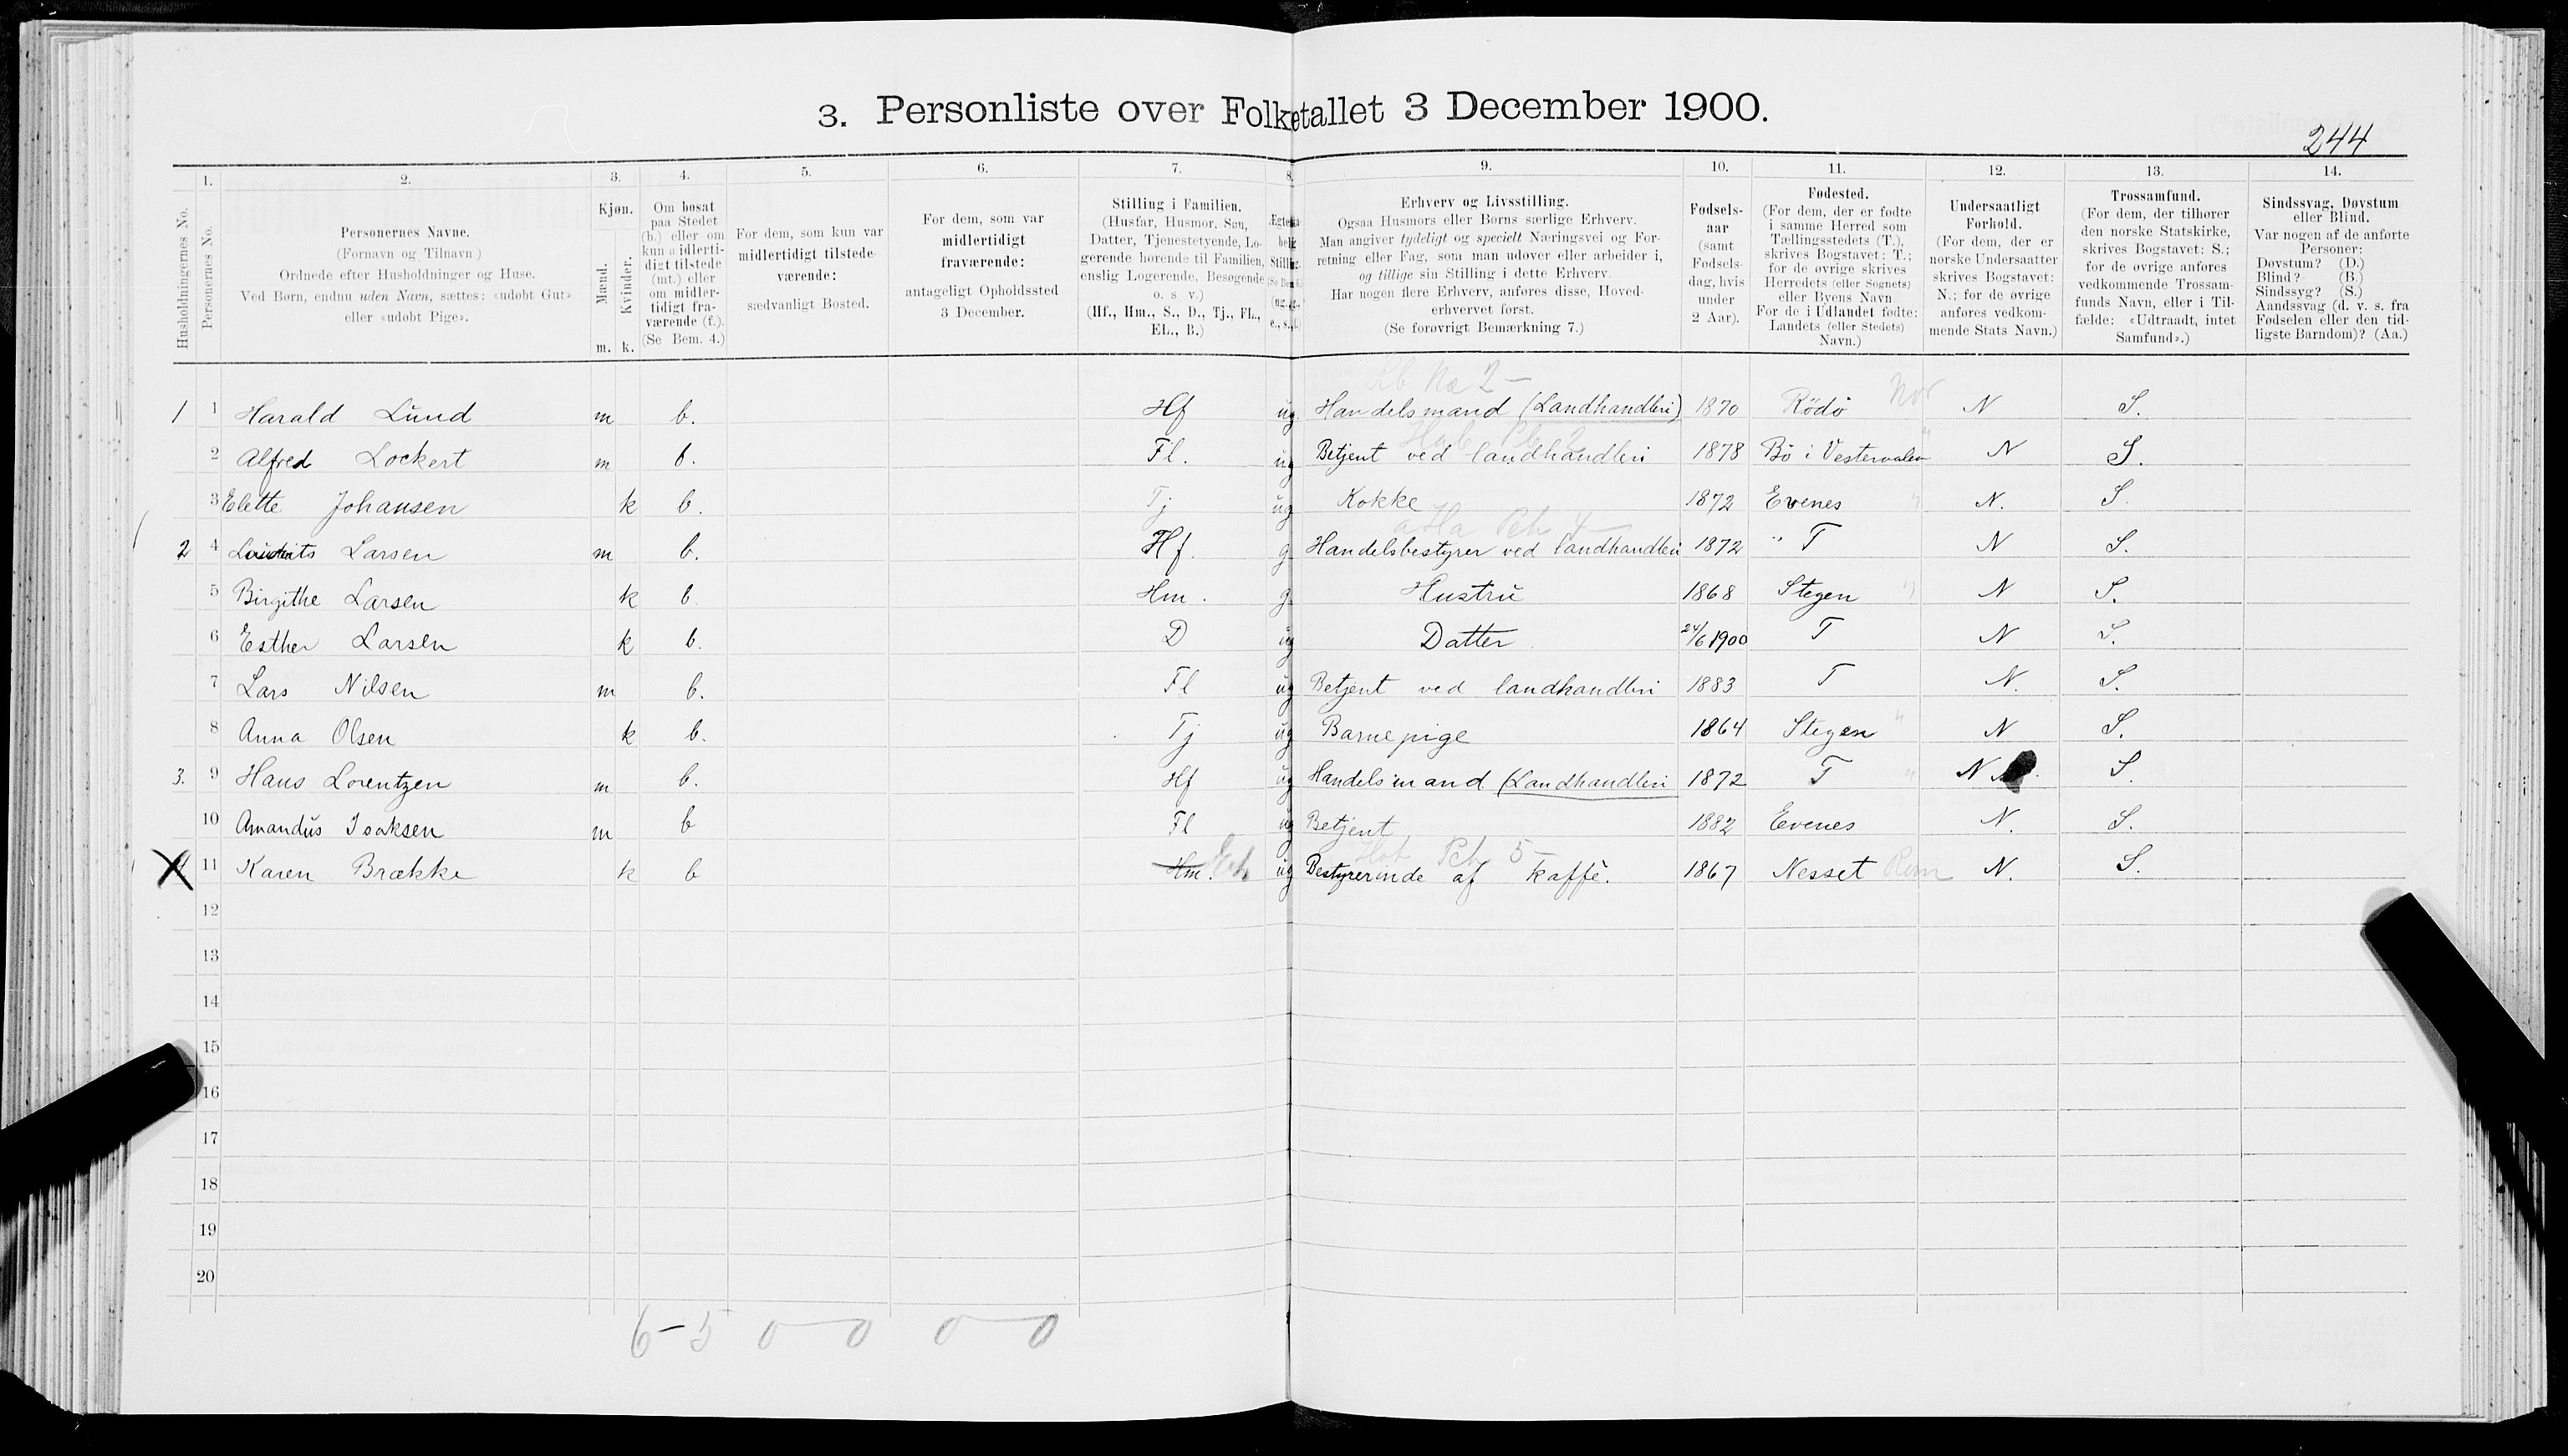 3. Personliste over Folketallet 3 December 1900.
244
1. 2. 3. 4. 5. 6. 7. 8. 9. 10. 11. 12. 13. 14.
Husholdningernes No.
Personernes No.
Personernes Navne.
(Fornavn og Tilnavn)
Ordnede efter Husholdninger og Huse.
Ved Børn, endnu uden Navn, sættes: «udøbt Gut»
eller «udøbt Pige».
Kjøn.
Mænd.
Kvinder.
m. k.
Om bosat
paa Stedet
(b.) eller om
kun midlerti-
digt tilstede
(mt.) eller
om midler-
tidigt fra-
værende (f.).
(Se Bem. 4.)
For dem, som kun var
midlertidigt tilstede-
værende:
sædvanligt Bosted.
For dem, som var
midlertidigt
fraværende:
antageligt Opholdssted
3 December.
Stilling i Familien.
(Husfar, Husmor, Søn,
Datter, Tjenestetyende, Lo-
gerende hørende til Familien,
enslig Logerende, Besøgende
o. s v.)
(Hf., Hm., S., D., Tj., FL.,
EL., B.)
Erhverv og Livsstilling.
Ogsaa Husmors eller Børns særlige Erhverv.
Man angiver tydeligt og specielt Næringsvei og For-
retning eller Fag, som man udøver eller arbeider i,
og tillige sin Stilling i dette Erhverv.
Har nogen flere Erhverv, anføres disse, Hoved-
erhvervet først.
(Se forøvrigt Bemærkning 7.)
Fødsels-
aar
(samt
Fødsels-
dag, hvis
under
2 Aar).
Fødested.
(For dem, der er fødte
i samme Herred som
Tællingsstedets (T.),
skrives Bogstavet: T.;
for de øvrige skrives
Herredets (eller Sognets)
eller Byens Navn
For de i Udlandet fødte:
Landets (eller Stedets)
Navn.)
Undersaatligt
Forhold.
(For dem, der er
norske Undersaatter
skrives Bogstavet:
N.; for de øvrige
anføres vedkom-
mende Stats Navn.)
Trossamfund.
(For dem, der tilhører
den norske Statskirke,
skrives Bogstavet: S.;
for de øvrige anføres
vedkommende Trossam-
funds Navn, eller i Til-
fælde: «Udtraadt, intet
Samfund».)
Sindssvag, Døvstum
eller Blind.
Var nogen af de anførte
Personer:
Døvstum? (D.)
Blind? (B.)
Sindssyg? (S.)
Aandssvag (d. v. s. fra
Fødselen eller den tid-
ligste Barndom)? (Aa.)
1 1 Harald Lund m b. Hf ug. Handelsmand (Landhandleri) 1870 Rödö N S.
2 Alfred Lockert m b. Fl. ug Betjent ved landhandleri 1878 Bö i Vesteraalen N S.
3 Elette Johansen k b. Tj ug Kokke 1872 Evenes N. S.
2 4 Larsen m b. Hf. g Handelsbestyrer ved landhandleri 1872 " T N S.
5 Birgithe Larsen k b Hm. g. Hustru 1868 Stegen N S.
6 Esther Larsen k b. D ug Datter 24/6 1900 T N S.
7 Lars Nilsen m b. Fl ug Betjent ved landhandleri 1883 T N. S.
8 Anna Olsen k b. Tj ug Barnepige 1864 Stegen N S.
3. 9 Hans Lorentzen m b. Hf ug Handelsmand (Landhandleri 1872 T N S.
10 Amandus Isaksen m b Fl ug Betjent 1882 Evenes N. S.
11 Karen Brække k b Hm. ug Bestyrerinde af kaffè. 1867 Nesset N. S.
12
13
14
15
16
17
18
19
20
6-5 0-0 0-0